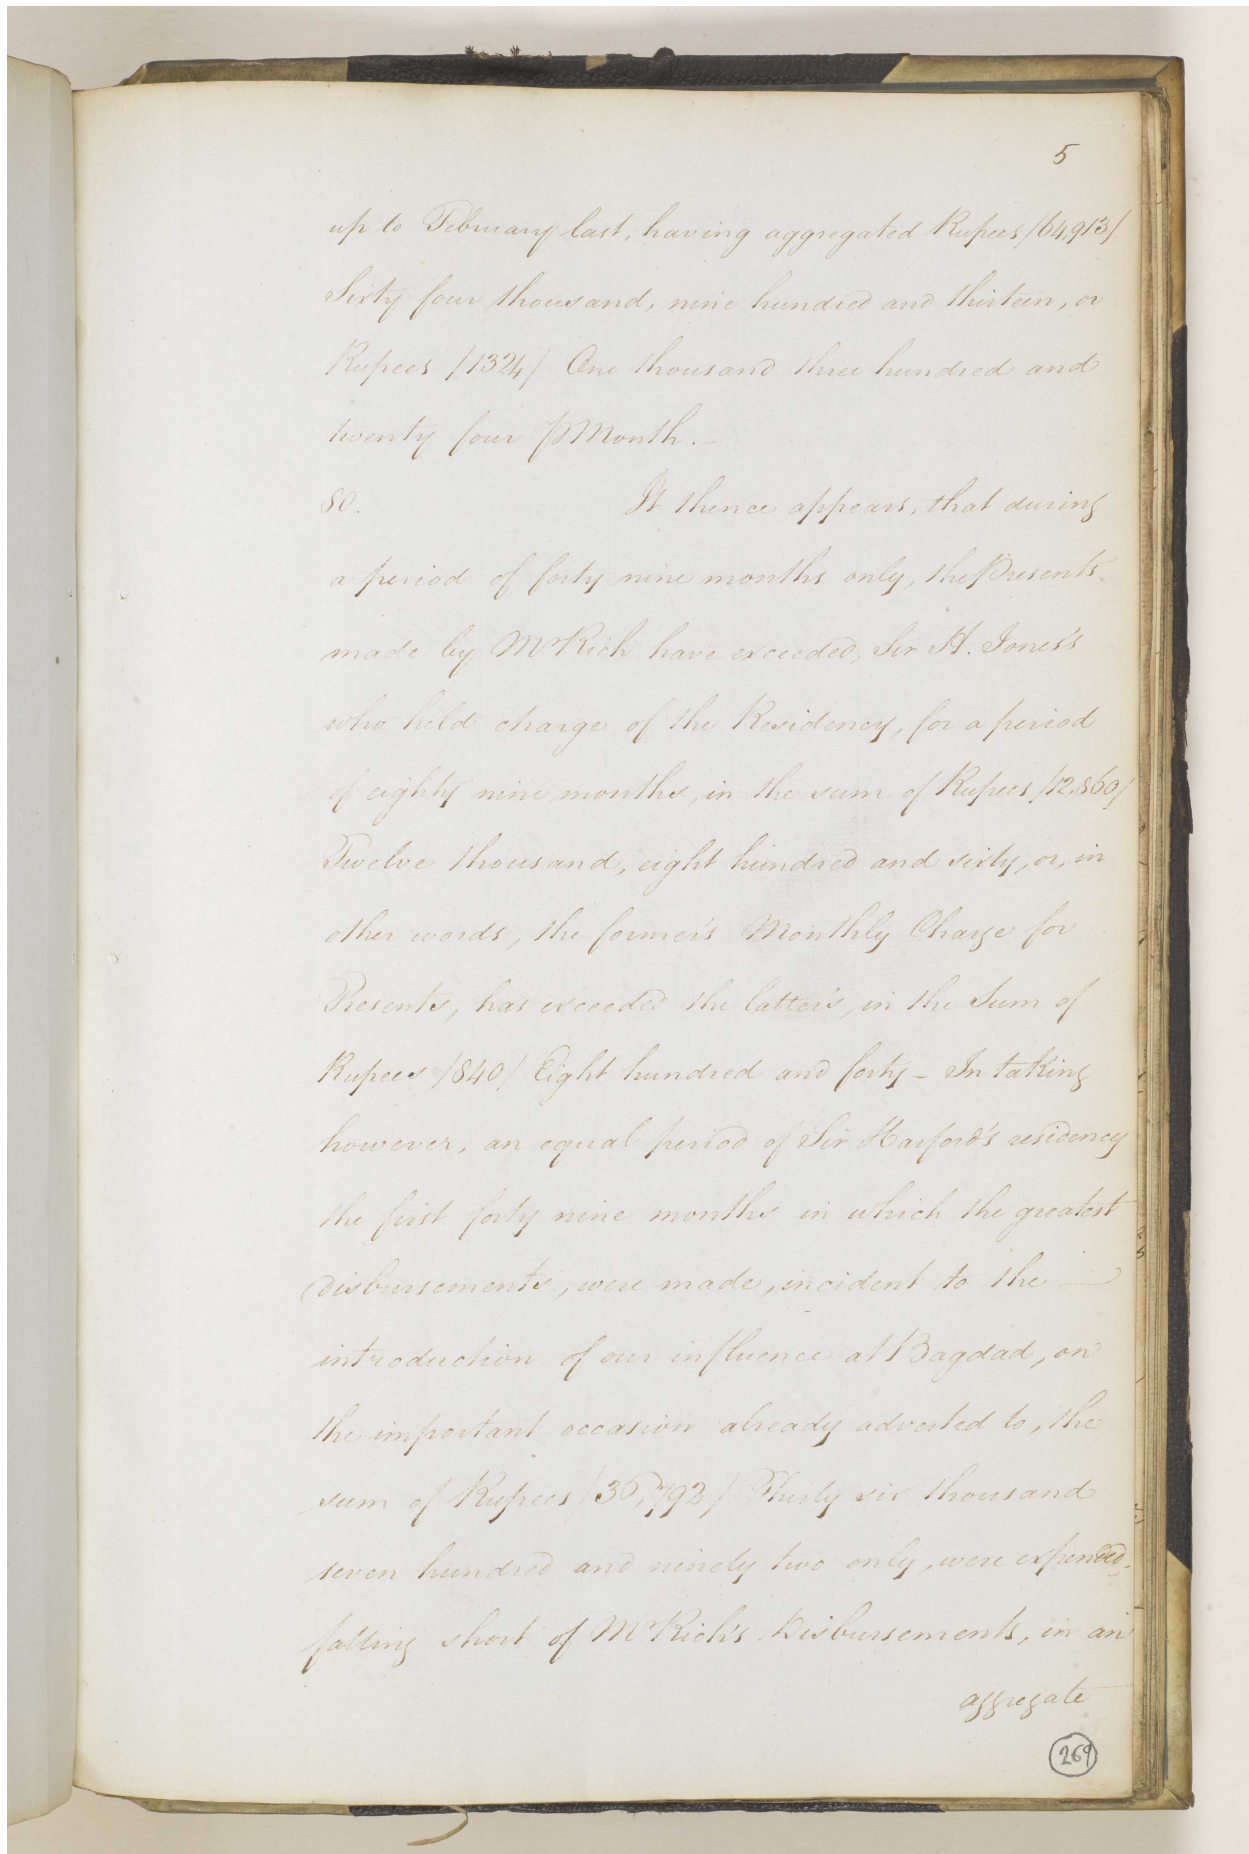 5
up to February last, having aggregated Rupees /64,913/
Sixty four thousand, nine hundred and thirteen, or
Rupees /1324/ One thousand three hundred and
twenty four P Month. -
80. It thence appears, that during
a period of forty nine months only, the Presents
made by Mr Rich have exceeded, Sir H. Jones's
who held charge of the Residency, for a period
of eighty nine months, in the sum of Rupees /12,860/
Twelve thousand, eight hundred and sixty, or, in
other words, the former's Monthly Charge for
Presents, has exceeded the latter's, in the Sum of
Rupees /840/ Eight hundred and forty - In taking
however, an equal period of Sir Harford's residency
the first forty nine months in which the greatest
Disbursements, were made, incident to the —
introduction of our influence at Bagdad, on
the important occasion already adverted to, the
sum of Rupees /36,792/ Thirty six thousand
seven hundred and ninety two only, were expended,
falling short of Mr Rich's Disbursements, in an
aggregate
269